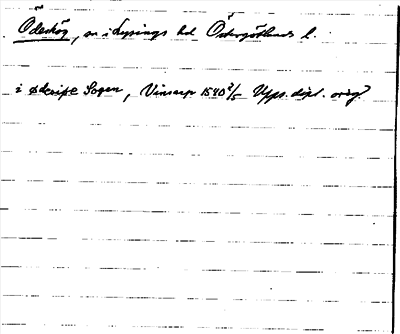 Ödeshög, sn i Lysings hd Östergötlands l.
i økripe Sogen, Vinsarp 1540 2/5 Upps. dipl. orig.